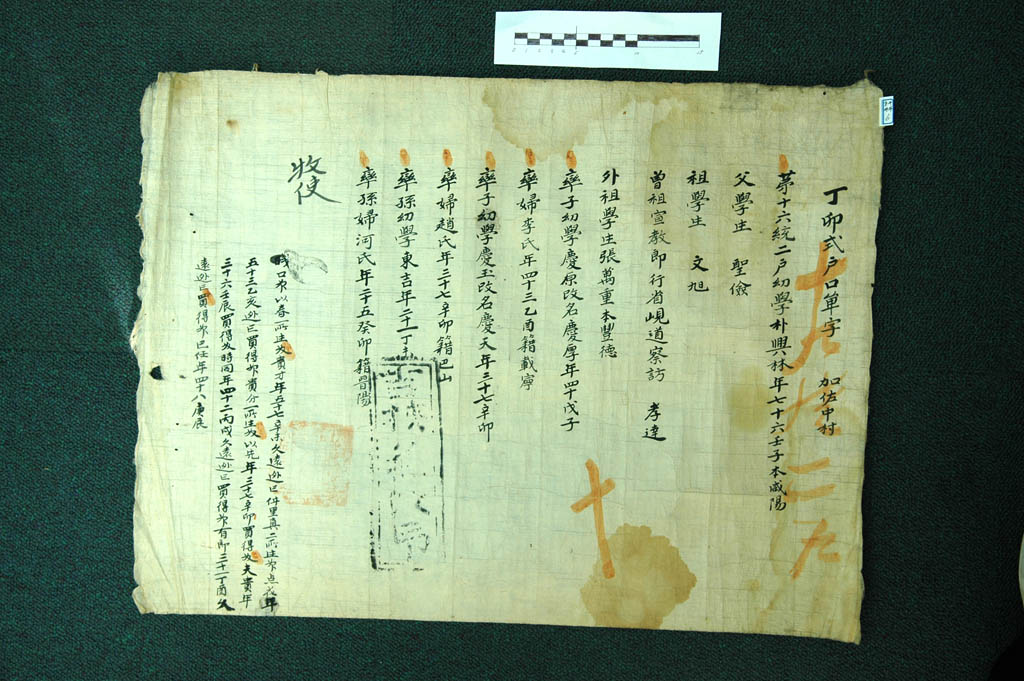 丁卯式戶口單字 加佐中村
第十六統二戶幼學朴興林年七十六壬子本咸陽
父學生 聖儉
祖學生 文旭
曾祖宣敎郞行省峴道察訪 孝達
外祖學生張萬重本豐德
率子幼學慶原改名慶厚年四十戊子
率婦李氏年四十三乙酉籍載寧
率子幼學慶玉改名慶天年三十七辛卯
率婦趙氏年三十七辛卯籍巴山
率孫幼學東吉年二十一丁
率孫婦河氏年二十五癸卯籍晋陽
牧使
口奴以春一所生奴貴才年五十七辛未久遠逃亡件里眞二所生婢点伐年
五十三乙亥逃亡買得婢貴分一所生奴以先年三十七辛卯買得奴夫貴年
三十六壬辰買得奴時同年四十二丙戌久遠逃亡買得婢有卽二十一丁酉久
遠逃亡買得婢已任年四十八庚辰